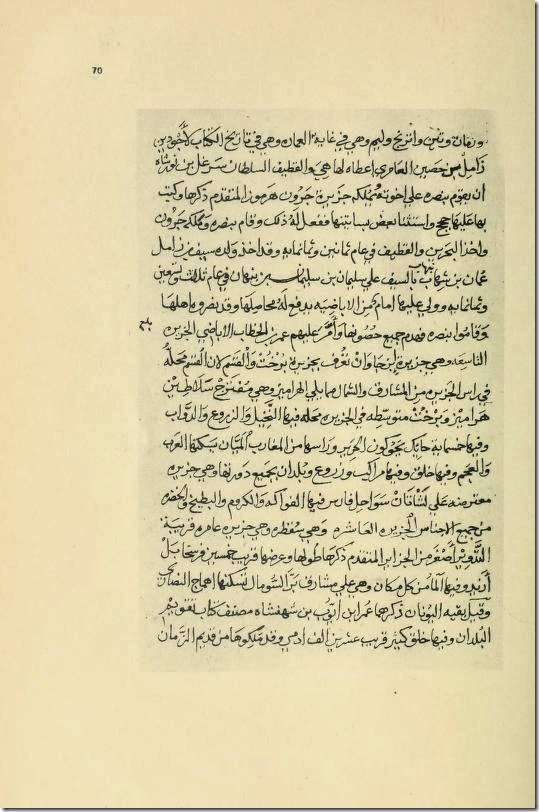 70
ورمّان وتين واترنج وليم وهي في غاية العماره وهي في تاريخ الكتاب لأجود بن
زامل بن حصين العامري اعطاه لها هي والقطيف السلطان سرغل بن نورشاه
ان يقوم بنصره علي اخوته ويملكه جزيرة جرون هرموز المتقدم ذكرها وكتب
بها عليها حجج واستثنا بعض بساتينها ففعل له ذلك وقام بنصره وملكه جرون
واخذ البحرين والقطيف في عام ثمانين وثمانمايه وقد اخذ ولده سيف بن زامل
عمان بن شهاب بالسيف علي سليمان بن سليمان بن نبهان في عام ثلاث وتسعين
وثمانمايه وولي عليها امام من الاباضيه يدفع له محاصلها وقد نصروه اهلها
وقاموا بنصره فهدم جميع حصونها وأمّر عليهم عمر بن الخطاب الاباضي الجزيره
التاسعه وهي جزيرة ابن جاوان تعرف بجزيرة برخت والقسم لان القسم محلّه
في راس الجزيره من المشارق والشمال مما يلي الهراميز وهي مفترج سلاطين
هراميز وبرخت متوسّطه في الجزيره محله فيها النخيل والزروع والدواب
وفيها خمسماية حايك يحوكون الحرير وراسها من المغارب سكنها العرب
والعجم وفيها خلق وفيها مراكب وزروع وبلدان بجميع دورتها وهي جزيره
معترضه علي سواحل فارس فيها الفواكه والكروم والبطيخ والخضره
من جميع الاجناس الجزيره العاشره وهي سقطره وهي جزيره عامره قريبة
التدوير أصغر من الجزاير المتقدم ذكرها طولها وعرضها قريب خمسين فرسخا بل
أزيد وفيها الما من كل مكان وهي علي مشارق برّ السّومال تسكنها اهماج النصاري
وقيل بقيه اليونان ذكرهما عمر ابن ايوب بن شهنشاه مصنف كتاب تقويم
البلدان وفيها خلق كثير قريب عشرين ألف ادمي وقد ملكوها من قديم الزمان